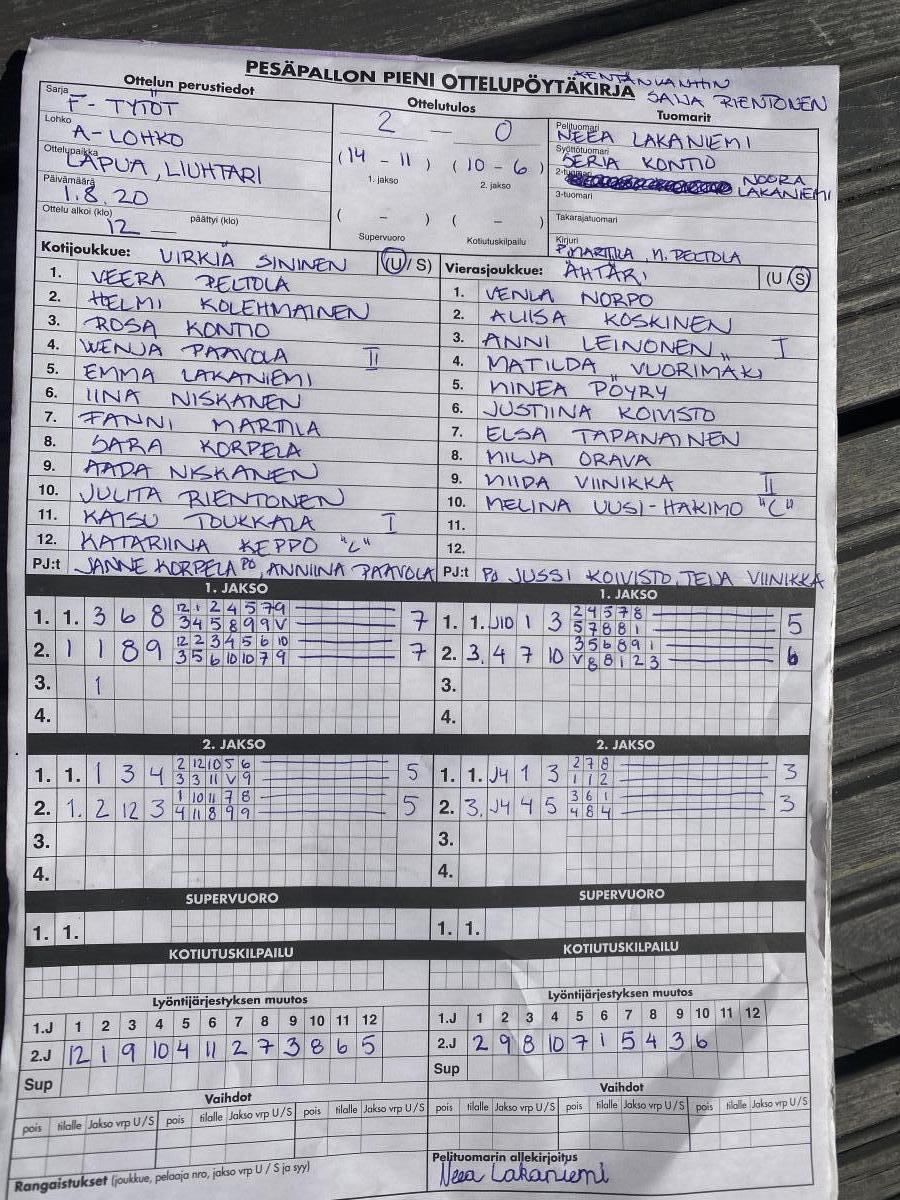 PESÄPALLON PIENI OTTELUPÖYTÄKIRJA
KENTÄNVANHIN
SAIJA RIENTONEN
Ottelun perustiedot
Sarja
F-TYTÖT
Lohko
A-LOHKO
Ottelupaikka
LAPUA, LIUHTARI
Päivämäärä
1.8.20
Ottelu alkoi (klo) päättyi (klo)
12 __
Ottelutulos
2 — 0
(14 - 11) (10 - 6)
1. jakso 2. jakso
( - ) ( - )
Supervuoro Kotiutuskilpailu
Tuomarit
Pelituomari
NEEA LAKANIEMI
Syöttötuomari
SERIA KONTIO
2-tuomari
NOORA LAKANIEMI
3-tuomari
Takarajatuomari
Kirjuri
P.MARTTILA, M.PELTOLA
Kotijoukkue: VIRKIÄ SININEN (U/S)
1. VEERA PELTOLA
2. HELMI KOLEHMAINEN
3. ROSA KONTIO
4. WENJA PAAVOLA II
5. EMMA LAKANIEMI
6. IINA NISKANEN
7. FANNI MARTTILA
8. SARA KORPELA
9. AADA NISKANEN
10. JULITA RIENTONEN
11. KATSU TOUKKALA I
12. KATARIINA KEPPO "L"
PJ:t JANNE KORPELA PO, ANNIINA PAAVOLA
Vierasjoukkue: ÄHTÄRI (U/S)
1. VENLA NORPO
2. ALIISA KOSKINEN
3. ANNI LEINONEN I
4. MATILDA VUORIMÄKI
5. MINEA PÖYRY
6. JUSTIINA KOIVISTO
7. ELSA TAPANAINEN
8. MILJA ORAVA
9. NIIDA VIINIKKA II
10. MELINA UUSI-HAKIMO "C"
11.
12.
PJ:t PO JUSSI KOIVISTO, TEIJA VIINIKKA
1. JAKSO
1. 1. 3 6 8 12 1 2 4 5 7 9 7
3 4 5 8 9 9 V
2. 1 1 8 9 12 2 3 4 5 6 10 7
3 5 6 10 10 7 9
3. 1
4.
1. JAKSO
1. 1. J10 1 3 2 4 5 7 8 5
5 7 8 8 1
2. 3. 4 7 10 3 5 6 8 9 1 6
V 8 8 1 2 3
3.
4.
2. JAKSO
1. 1. 1 3 4 2 12 10 5 6 5
3 3 11 V 9
2. 1. 2 12 3 1 10 11 7 8 5
4 11 8 9 9
3.
4.
2. JAKSO
1. 1. J4 1 3 2 7 8 3
1 1 2
2. 3. J4 4 5 3 6 1 3
4 8 4
3.
4.
SUPERVUORO
1. 1.
SUPERVUORO
1. 1.
KOTIUTUSKILPAILU
KOTIUTUSKILPAILU
Lyöntijärjestyksen muutos
1.J 1 2 3 4 5 6 7 8 9 10 11 12
2.J 12 1 9 10 4 11 2 7 3 8 6 5
Sup
Lyöntijärjestyksen muutos
1.J 1 2 3 4 5 6 7 8 9 10 11 12
2.J 2 9 8 10 7 1 5 4 3 6
Sup
Vaihdot
pois tilalle Jakso vrp U/S pois tilalle Jakso vrp U/S pois tilalle Jakso vrp U/S
Vaihdot
pois tilalle Jakso vrp U/S pois tilalle Jakso vrp U/S pois tilalle Jakso vrp U/S
Rangaistukset (joukkue, pelaaja nro, jakso vrp U / S ja syy)
Pelituomarin allekirjoitus
Neea Lakaniemi